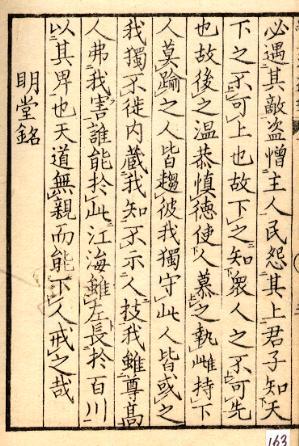 必遇其敵盗憎主人民怨其上君子知天
下之不可上也故下之知衆人之不可先
也故後之温恭慎徳使人慕之執雌持下
人莫踰之人皆趨彼我獨守此人皆或之
我獨不徙内蔵我知不示人技我雖尊髙
人弗我害誰能於此江海雖左長於百川
以其卑也天道無親而能下人戒之哉
明堂銘
163